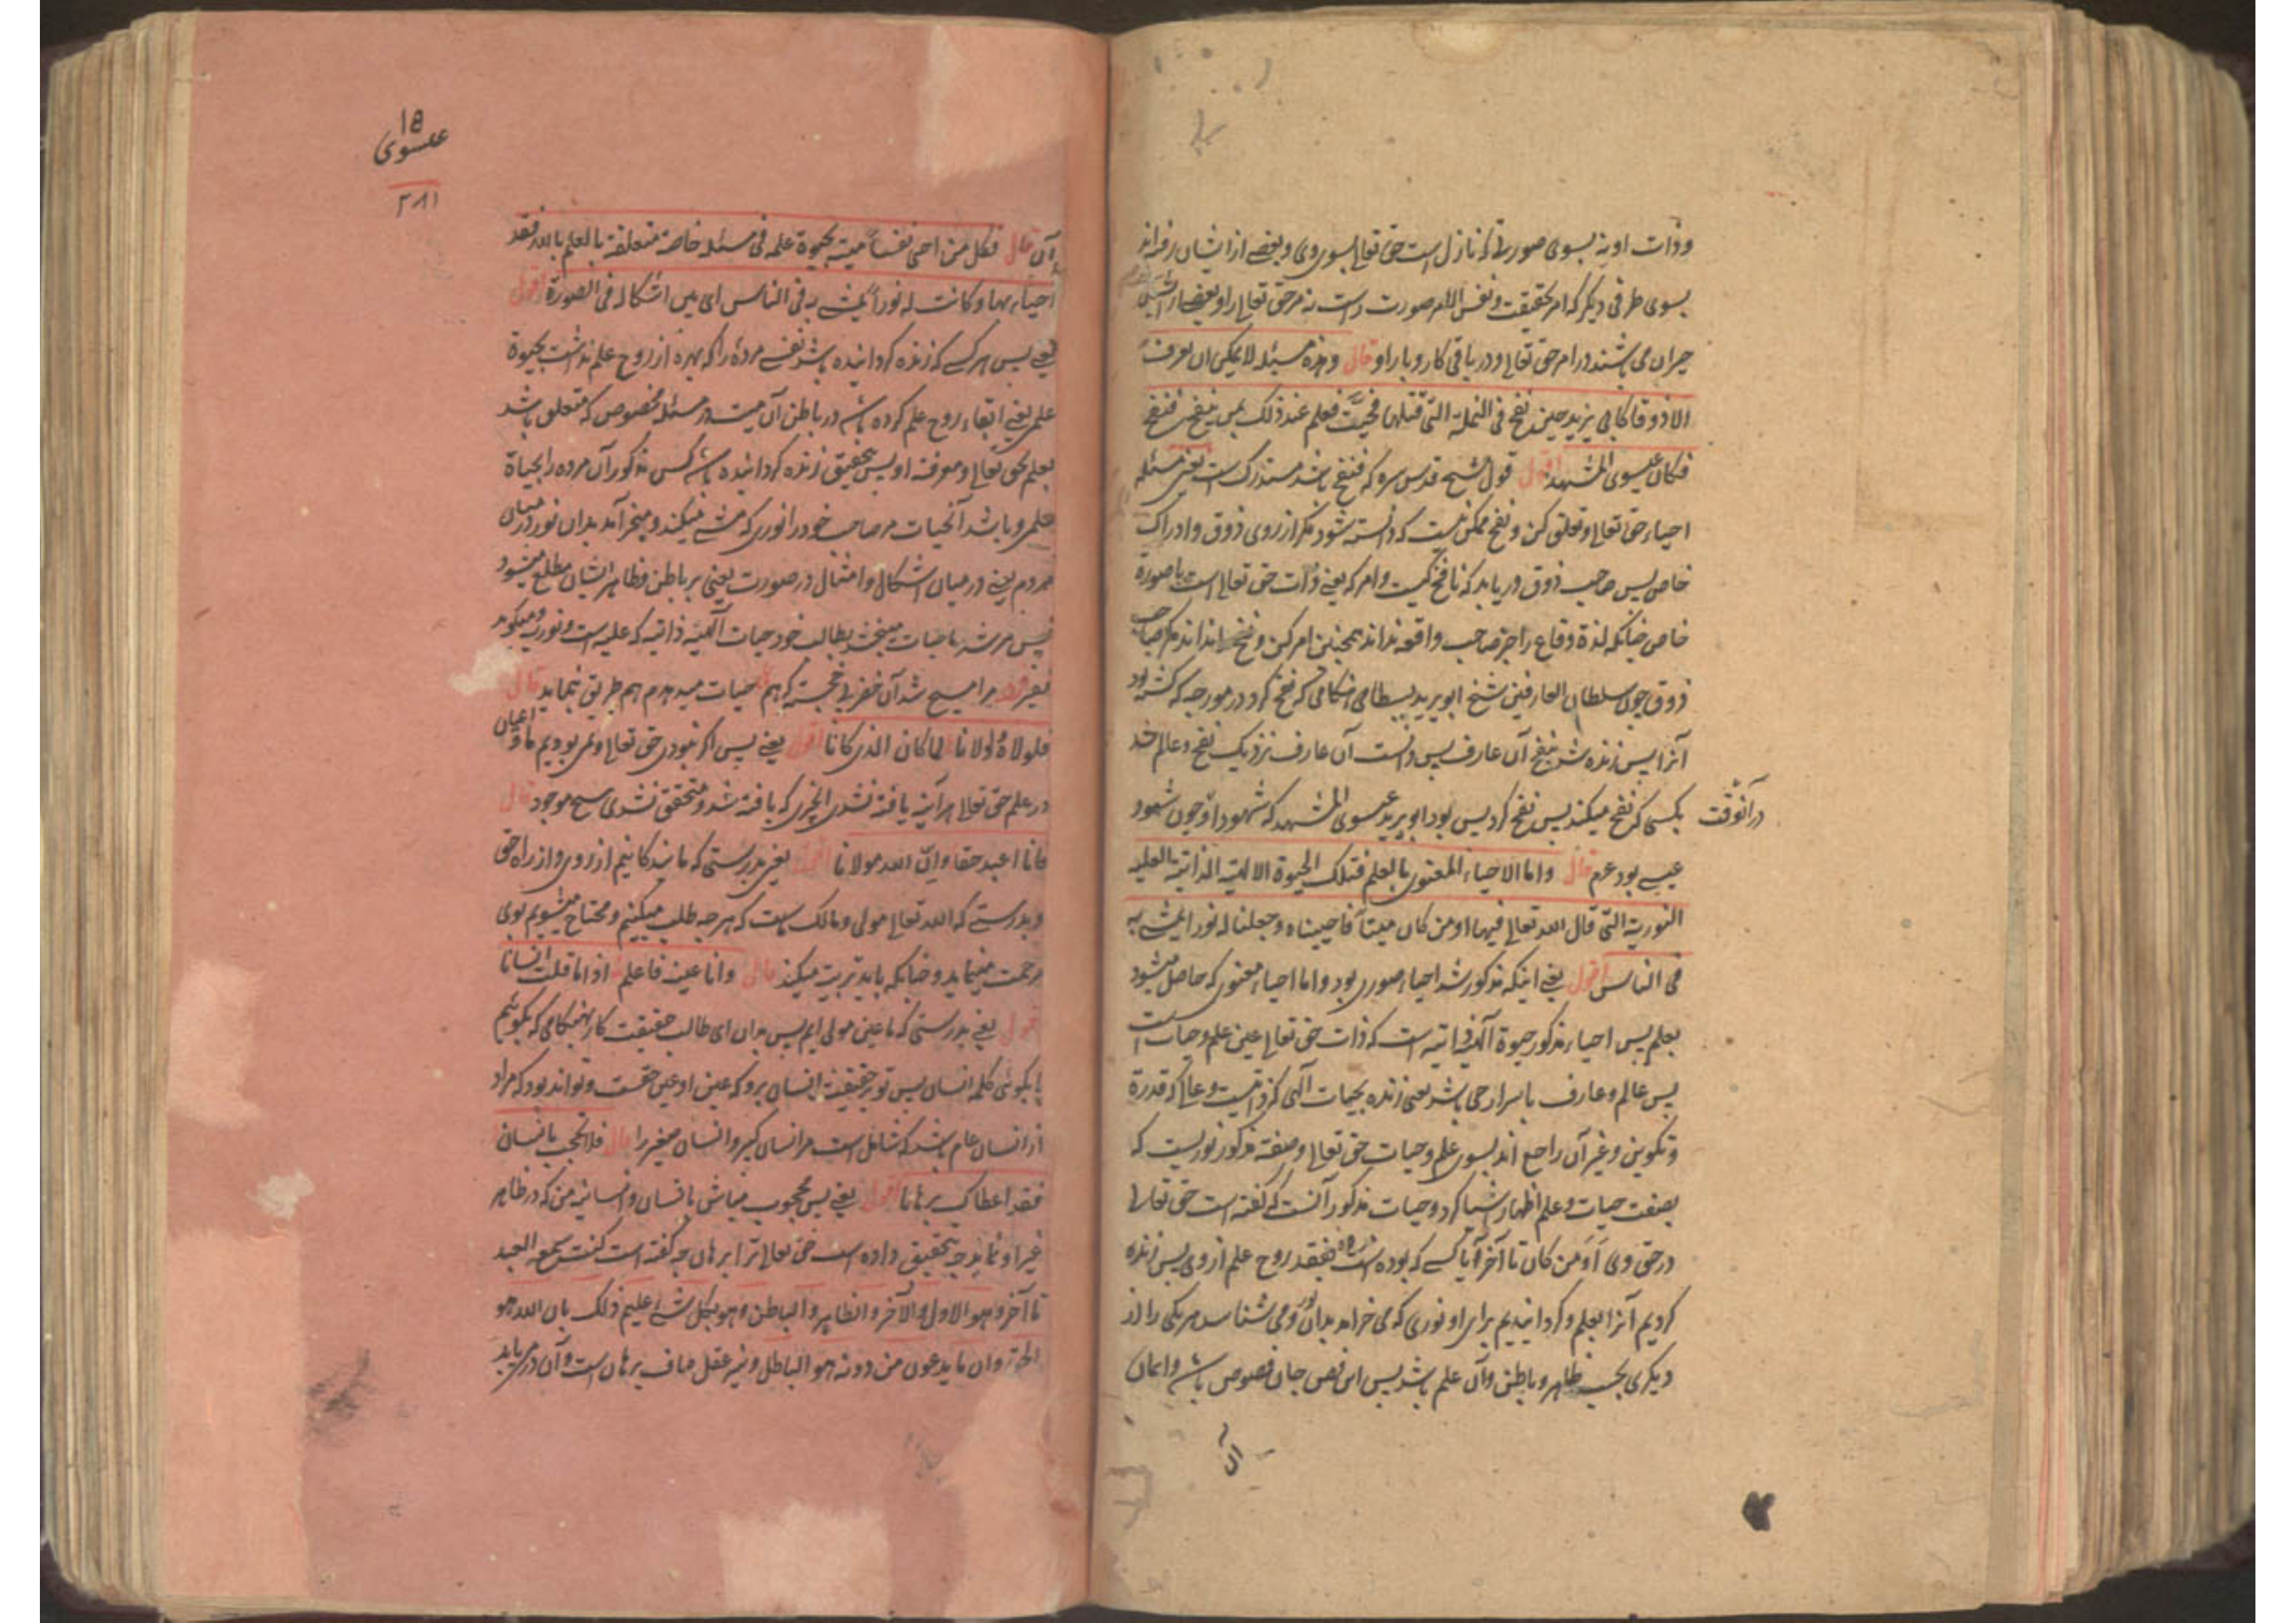 وذات او نه بسوی صورتی که نازل است حق تعالی بسوی وی و بعضی از ایشان رفته اند
بسوی طرفی دیگر که امر بحقیقت و نفس الامر صورت راست نه مر حق تعالی را و بعضی از ایشان
حیران می باشند در امر حق تعالی و در باقی کار و بار او قال وهذه مسئلة لا یمکن ان تعرف
الا ذوقا کابی یزید حین نفخ فی النملة التی قتلها فحییت فعلم عند ذلک بمن ینفخ فنفخ
فکان عیسوی المشهد اقول قول شیخ قدس سره که فنفخ باشد مستدرک است یعنی مسئله
احیاء حق تعالی و تعلق کن و نفخ ممکن نیست که دانسته شود مگر از روی ذوق و ادراک
خاص پس صاحب ذوق دریابد که نافخ کیست و امر که یعنی ذات حق تعالی است یا صورة
خاص چنانکه لذة وقاع را جز صاحب واقعه نداند همچنین امر کن و نفخ را نداند مگر صاحب
ذوق چون سلطان العارفین شیخ ابو یزید بسطامی هنگامی که نفخ کرد در مورچه که کشته بود
آنرا پس زنده شد بنفخ آن عارف پس دانست آن عارف نزدیک نفخ و عالم شد
در آنوقت
بکسی که نفخ میکند پس نفخ کرد پس بود ابو یزید عیسوی المشهد که شهود او چون شهود
عیسی بود عم قال واما الاحیاء المعنوی بالعلم فتلک الحیوة الالهیة الذاتیة العلیة
النوریة التی قال الله تعالی فیها اومن کان میتا فاحییناه وجعلنا له نورا یمشی به
فی الناس اقول یعنی اینکه مذکور شد احیاء صوری بود و اما احیاء معنوی که حاصل میشود
بعلم پس احیاء مذکور حیوة الهی ذاتیه است که ذات حق تعالی عین علم و حیات است
پس عالم و عارف باسرار حی باشد یعنی زنده بحیات الهی که ذاتیست و عالی که قدرة
و تکوین و غیر آن راجع اند بسوی علم و حیات حق تعالی و صفة مذکور نوریست که
بصفت حیات و علم اظهار اشیا کرد و حیات مذکور آنست که گفته است حق تعالی
در حق وی اومن کان تا آخر آیا کسی که بوده است مرده بفقد روح علم از وی پس زنده
کردیم آنرا بعلم و گردانیدیم برای او نوری که می خرامد بدان نور و می شناسد هر یکی را از
دیگری بحسب ظاهر و باطن و آن علم باشد پس این فص جان فصوص باشد و ایمان
آن
۱۵
عیسوی
۲۸۱
آن قال فکل من احی نفسا میتة بحیوة علمیة فی مسئلة خاصة متعلقة بالعلم بالله فقد
احیاه بها وکانت له نورا یمشی به فی الناس ای بین اشکاله فی الصورة اقول
یعنی پس هر کسی که زنده گردانیده باشد نفسی مرده را که بهره از روح علم نداشت بحیوة
علمی یعنی القاء روح علم کرده باشد در باطن آن میت در مسئله مخصوص که متعلق باشد
بعلم بحق تعالی و معرفة او پس بتحقیق زنده گردانیده باشد کس مذکور آن مرده را بحیاة
علمی و باشد آنحیات مر صاحب خود را نوری که مشی میکند و میخرامد بدان نور در میان
مردم یعنی در میان اشکال و امثال در صورت یعنی بر باطن و ظاهر ایشان مطلع میشود
پس مرشد ما حیات میبخشد بطالب خود حیات الهیه ذاتیه که علیه است و نوریه و میگوید
مرا مسیح شد آن خضر پی خجسته که هم حیات میدهدم هم طریق بنماید قال
فلولاه ولولانا لما کان الذی کانا اقول یعنی پس اگر نبودی حق تعالی و نمی بودیم ما و اعیان
در علم حق تعالی هر آینه یافته نشدی انچیزی که یافته شد و متحقق نشدی هیچ موجود قال
فانا اعبد حقا وان الله مولانا اقول یعنی بدرستی که ما بندگانیم از روی و از راه حق
و بدرستی که الله تعالی مولی و مالک ماست که هر چه طلب میکنیم و محتاج میشویم بوی
مرحمت مینماید و چنانکه باید تربیت میکند قال وانا عینه فاعلم اذا ما قلت انسانا
اقول یعنی بدرستی که ما عین مولی ایم پس بدان ای طالب حقیقت کار هنگامی که بگوئیم
یا بگوئی کلمه انسان پس تو بر حقیقة انسان برو که عین او عین حقست و تواند بود که مراد
از انسان عام باشد که شامل است مر انسان کبیر و انسان صغیر را قال فلا تحجب بانسان
فقد اعطاک برهانا اقول یعنی پس محجوب مباش بانسان و انسانیة من که در ظاهر
غیر او نماید چه بتحقیق داده است حق تعالی ترا برهان چه گفته است کنت سمعه العبد
تا آخر وهو الاول والآخر والظاهر والباطن وهو بکل شئ علیم ذلک بان الله هو
الحق وان ما یدعون من دونه هو الباطل و نیز عقل صاف برهان است و آن در می یابد